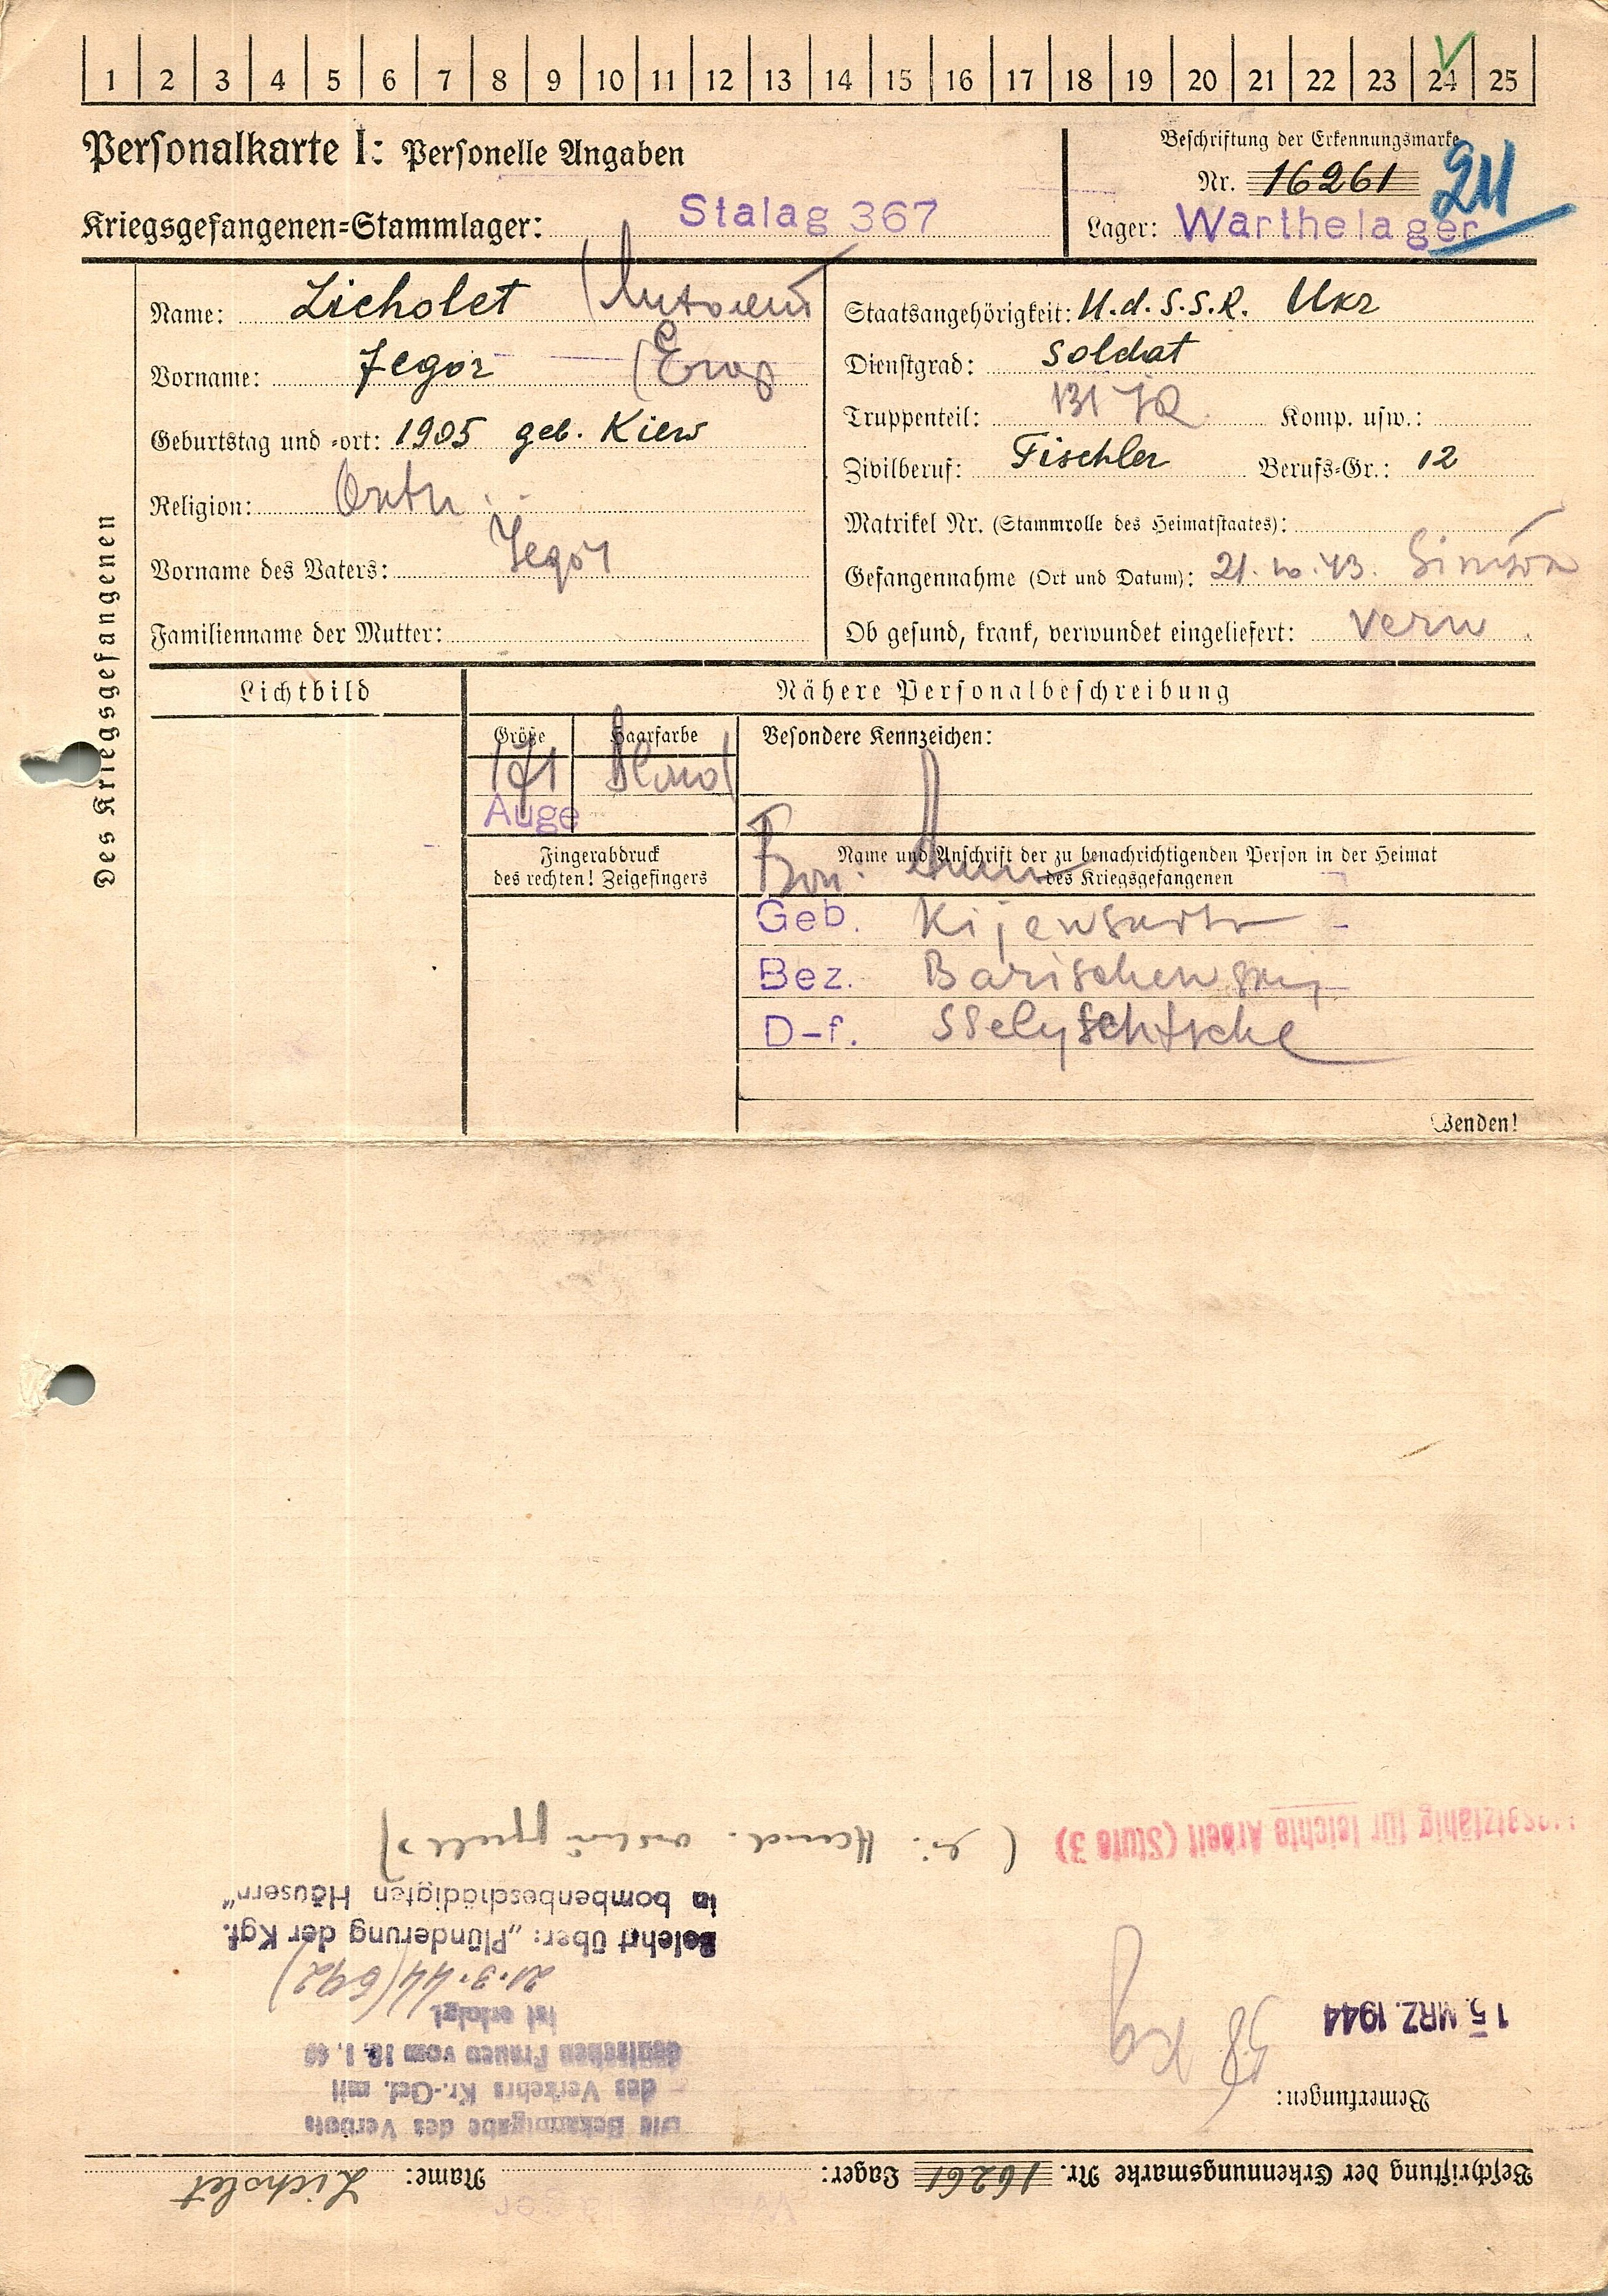 1 2 3 4 5 6 7 8 9 10 11 12 13 14 15 16 17 18 19 20 21 22 23 24 25
Personalkarte I: Personelle Angaben
Beschriftung der Erkennungsmarke
Nr. 16261
Kriegsgefangenen=Stammlager: Stalag 367
Lager: Warthelager
Des Kriegsgefangenen
Name: Licholet
Vorname: Jegor
Geburtstag und =ort: 1905 geb. Kiew
Religion: Orth
Vorname des Vaters: Jegor
Familienname der Mutter:
Staatsangehörigkeit: U.d.S.S.R. Ukr
Dienstgrad: Soldat
Truppenteil: 131 JR Komp. usw.:
Zivilberuf: Tischler Berufs=Gr.: 12
Matrikel Nr. (Stammrolle des Heimatstaates):
Gefangennahme (Ort und Datum): 21.10.43.
Ob gesund, krank, verwundet eingeliefert: verw
Lichtbild
Nähere Personalbeschreibung
Größe Haarfarbe
171 Blond
Auge
Besondere Kennzeichen:
Fingerabdruck
des rechten! Zeigefingers
Name und Anschrift der zu benachrichtigenden Person in der Heimat
des Kriegsgefangenen
Geb.
Bez. Barischewskij
D-f. Sselyschtsche
Wenden!
Beschriftung der Erkennungsmarke Nr. 16261 Lager: Name: Licholet
Bemerkungen:
Die Bekanntgabe des Verbots
des Verkehrs Kr.-Gef. mit
deutschen Frauen vom 16.1.40
ist erfolgt.
15. MRZ. 1944
58 kg
21.3.44 (692)
Belehrt über: „Plünderung der Kgf.
in bombenbeschädigten Häusern“
für leichte Arbeit (Stufe 3)